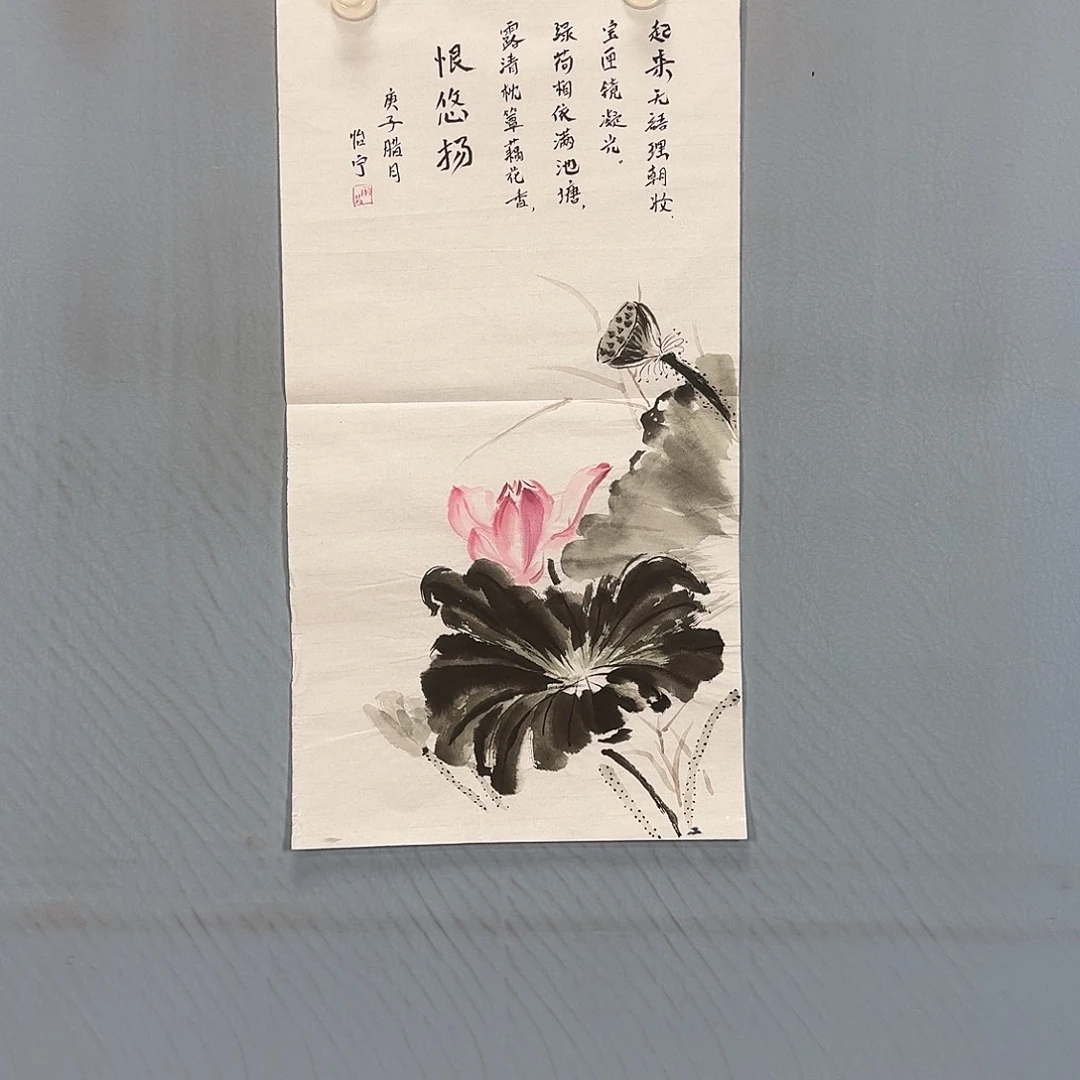 起来无語理朝妆，
宝匣镜凝光。
绿荷相依满池塘，
露清枕簟藕花香，
恨悠扬
庚子腊月
怡宁